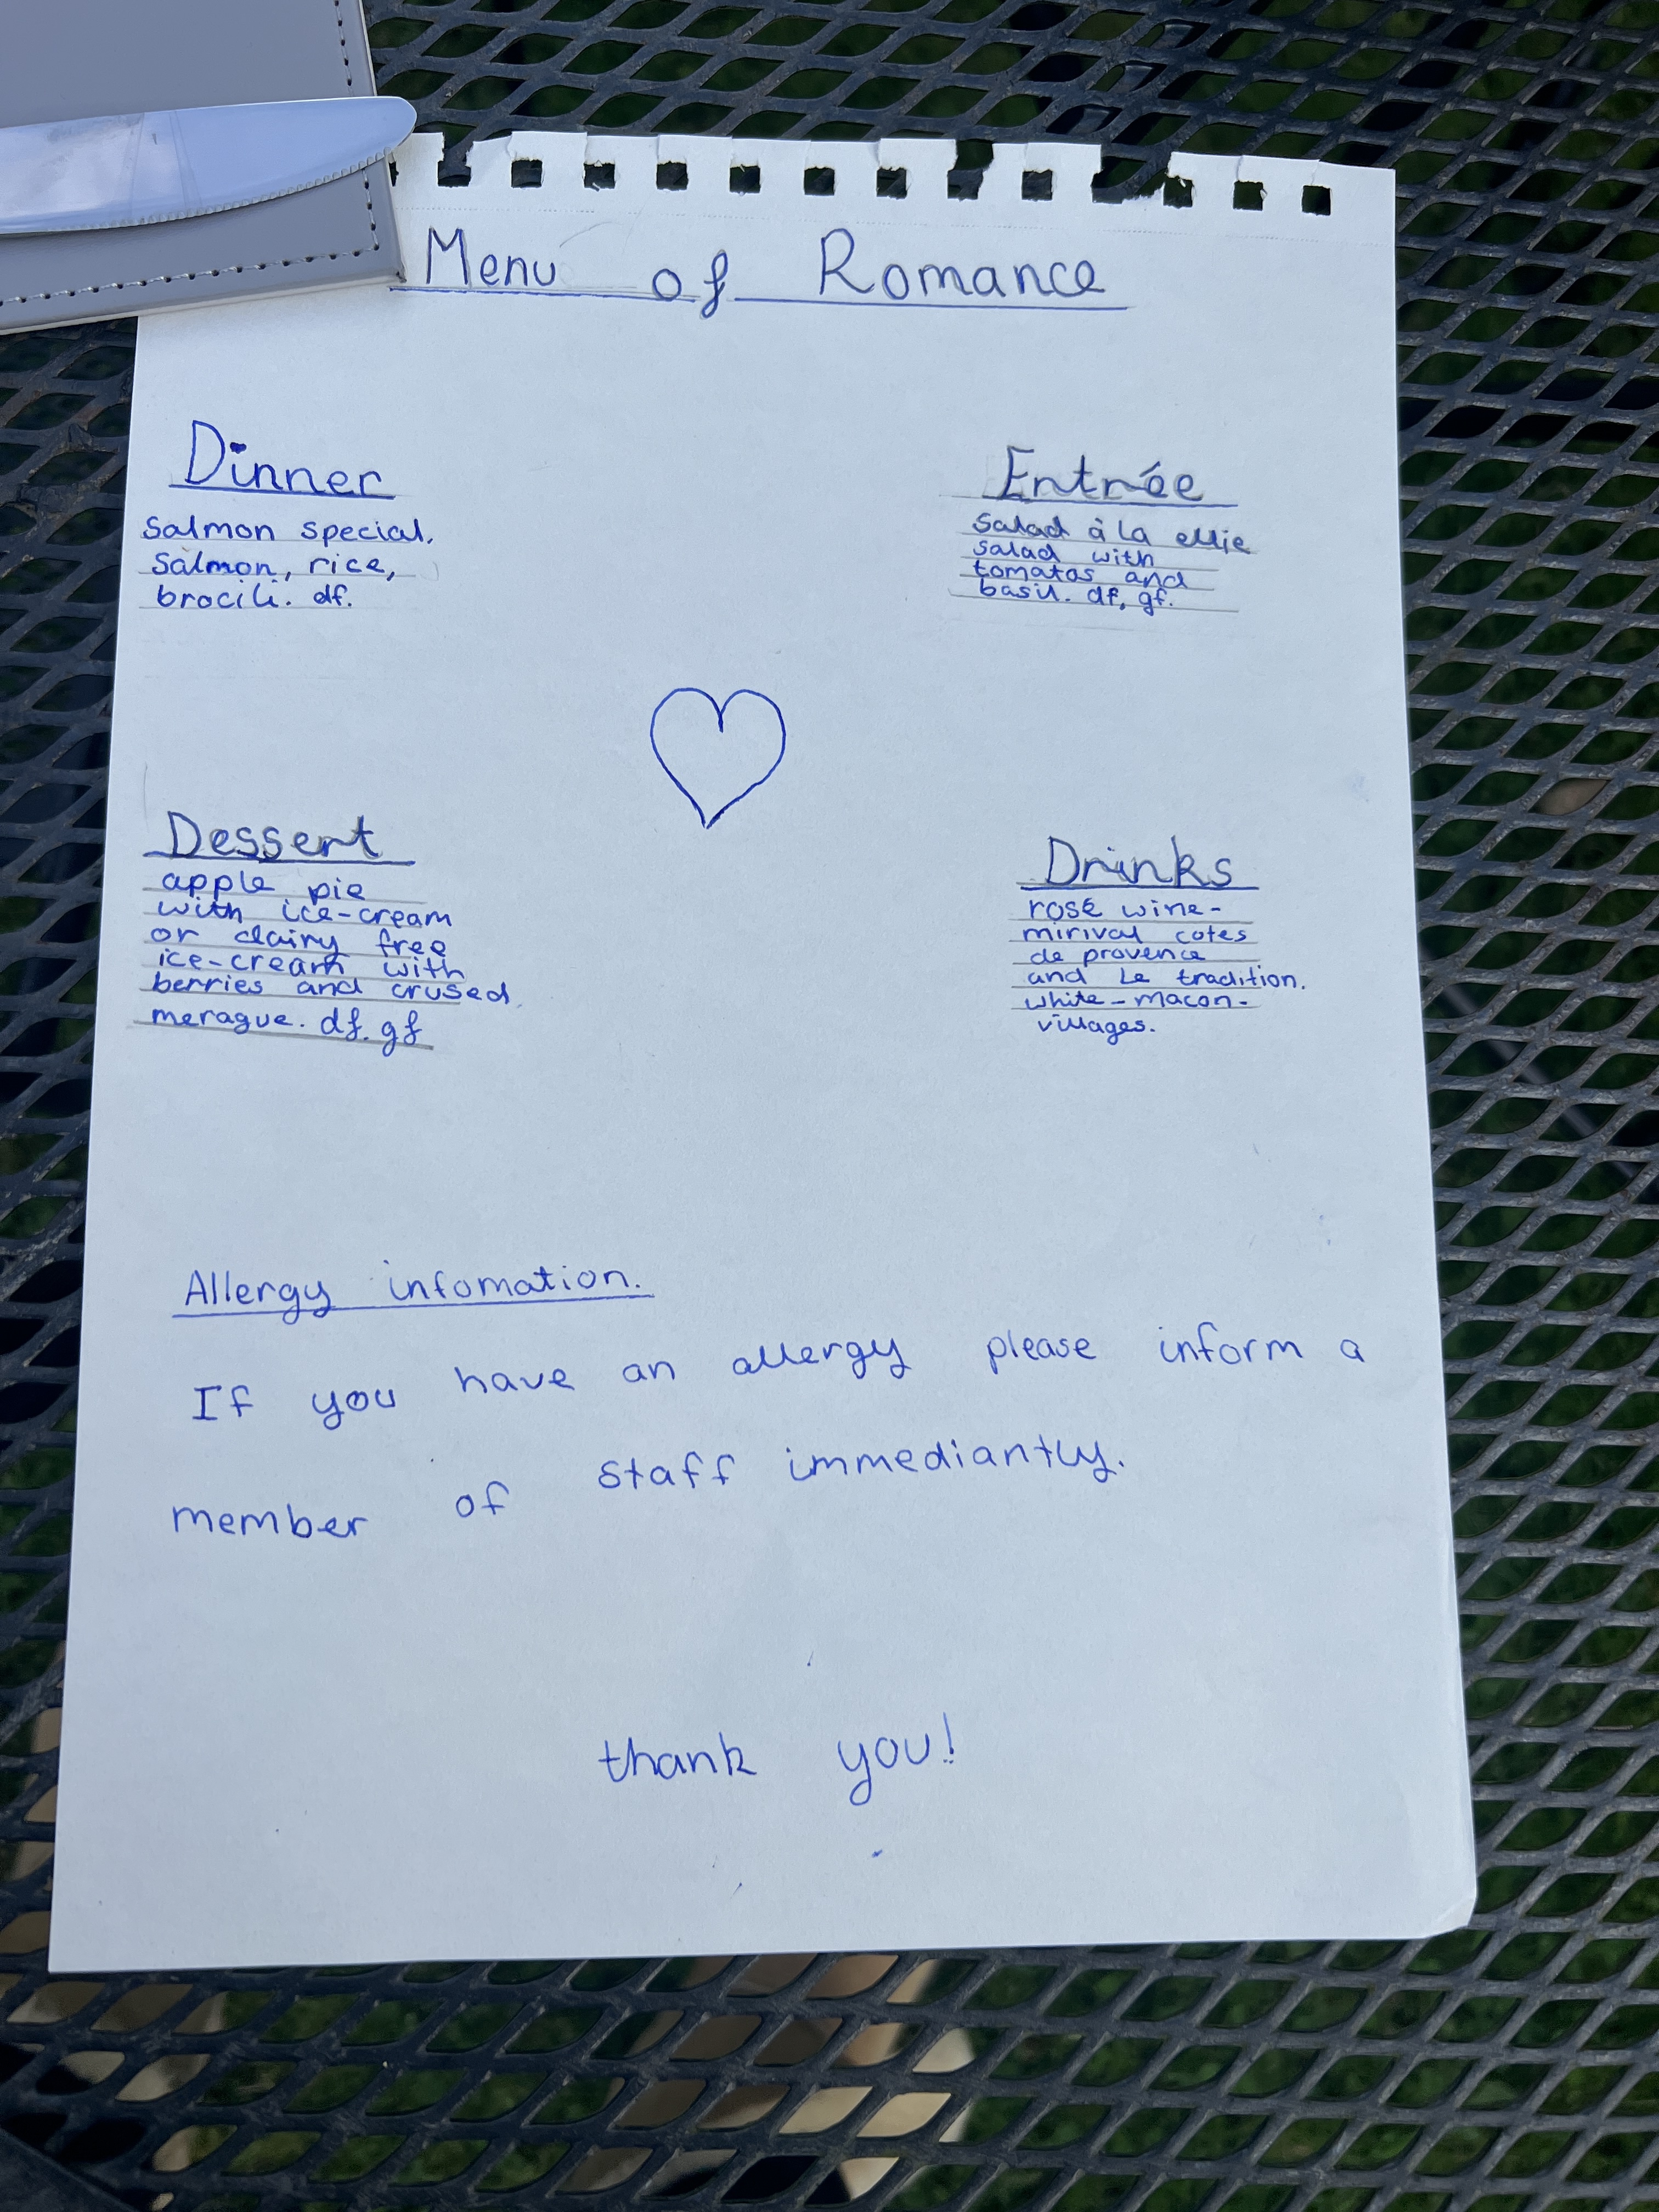 Menu of Romance
Dinner
Salmon special.
Salmon, rice,
brocili. df.
Entrée
Salad à la ellie
salad with
tomatos and
basil. df, gf.
Dessert
apple pie
with ice-cream
or dairy free
ice-cream with
berries and crused
merague. df. gf
Drinks
rosé wine-
mirival cotes
de provence
and Le tradition.
white-macon-
villages.
Allergy infomation.
If you have an allergy please inform a
member of staff immediantly.
thank you!